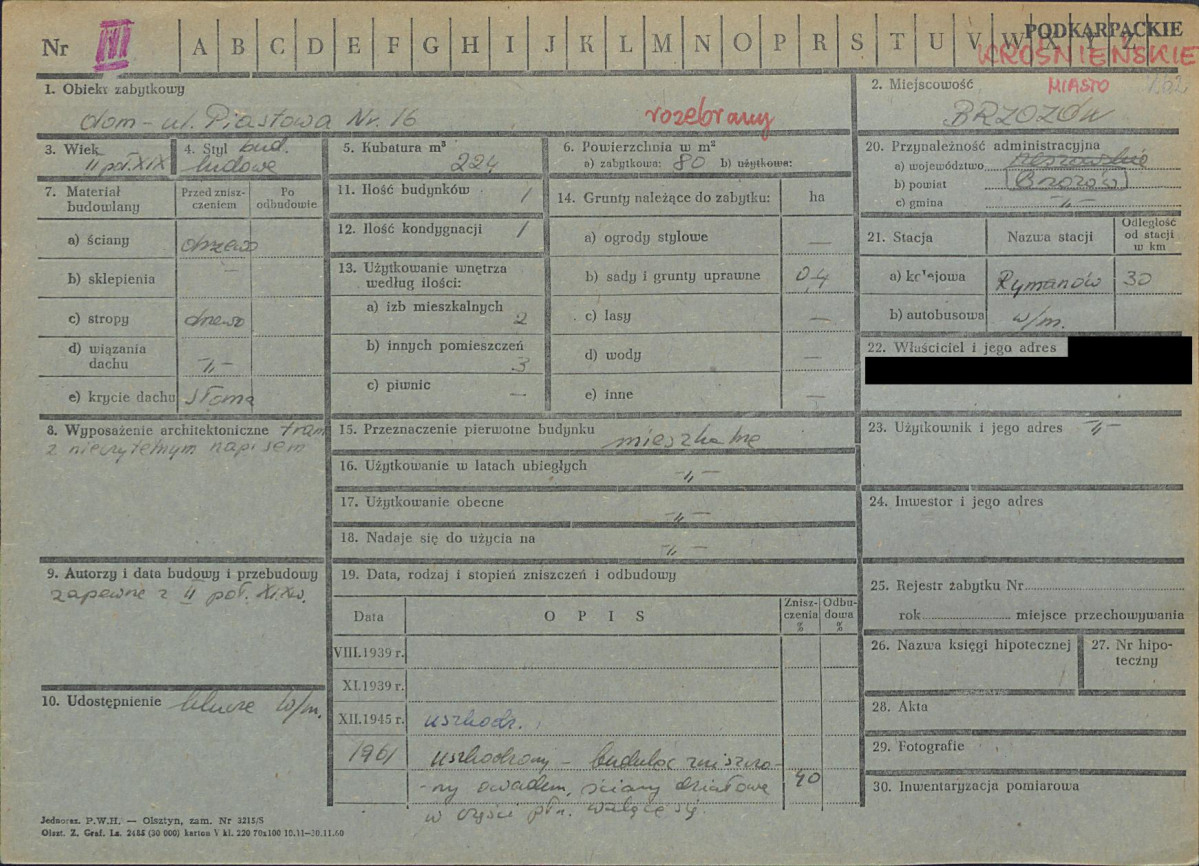 Nr III A B C D E F G H I J K L M N O P R S T U V W X Y Z
PODKARPACKIE
KROŚNIEŃSKIE
1. Obiekt zabytkowy
dom - ul. Piastowa Nr. 16
rozebrany
2. Miejscowość
MIASTO
BRZOZÓW
3. Wiek
II poł. XIX
4. Styl bud.
ludowe
5. Kubatura m³
224
6. Powierzchnia w m²
a) zabytkowa: 80 b) użytkowa:
20. Przynależność administracyjna
a) województwo rzeszowskie
b) powiat Brzozów
c) gmina -"-
7. Materiał budowlany
Przed zniszczeniem
Po odbudowie
a) ściany drzewo
b) sklepienia —
c) stropy drzewo
d) wiązania dachu -"-
e) krycie dachu słoma
11. Ilość budynków 1
12. Ilość kondygnacji 1
13. Użytkowanie wnętrza
według ilości:
a) izb mieszkalnych 2
b) innych pomieszczeń 3
c) piwnic —
14. Grunty należące do zabytku: ha
a) ogrody stylowe —
b) sady i grunty uprawne 0,4
c) lasy —
d) wody —
e) inne —
21. Stacja
Nazwa stacji
Odległość
od stacji
w km
a) kolejowa Rymanów 30
b) autobusowa w/m.
22. Właściciel i jego adres
8. Wyposażenie architektoniczne tram
z nieczytelnym napisem
15. Przeznaczenie pierwotne budynku mieszkalne
16. Użytkowanie w latach ubiegłych -"-
17. Użytkowanie obecne -"-
18. Nadaje się do użycia na -"-
23. Użytkownik i jego adres -"-
24. Inwestor i jego adres
9. Autorzy i data budowy i przebudowy
zapewne z II poł. XIXw.
19. Data, rodzaj i stopień zniszczeń i odbudowy
Data
O P I S
Zniszczenia
%
Odbudowa
%
VIII.1939 r.
XI.1939 r.
XII.1945 r. uszkodz.
1961 uszkodzony - budulec zniszczo-
-ny owadem, ściany działowe 40
w części płn. walące się.
25. Rejestr zabytku Nr
rok miejsce przechowywania
26. Nazwa księgi hipotecznej
27. Nr hipoteczny
10. Udostępnienie klucze w/m.
28. Akta
29. Fotografie
30. Inwentaryzacja pomiarowa
Jednoraz. P.W.H. — Olsztyn, zam. Nr 3215/S
Olszt. Z. Graf. La. 2485 (30 000) karton V kl. 220 70x100 10.11—30.11.60